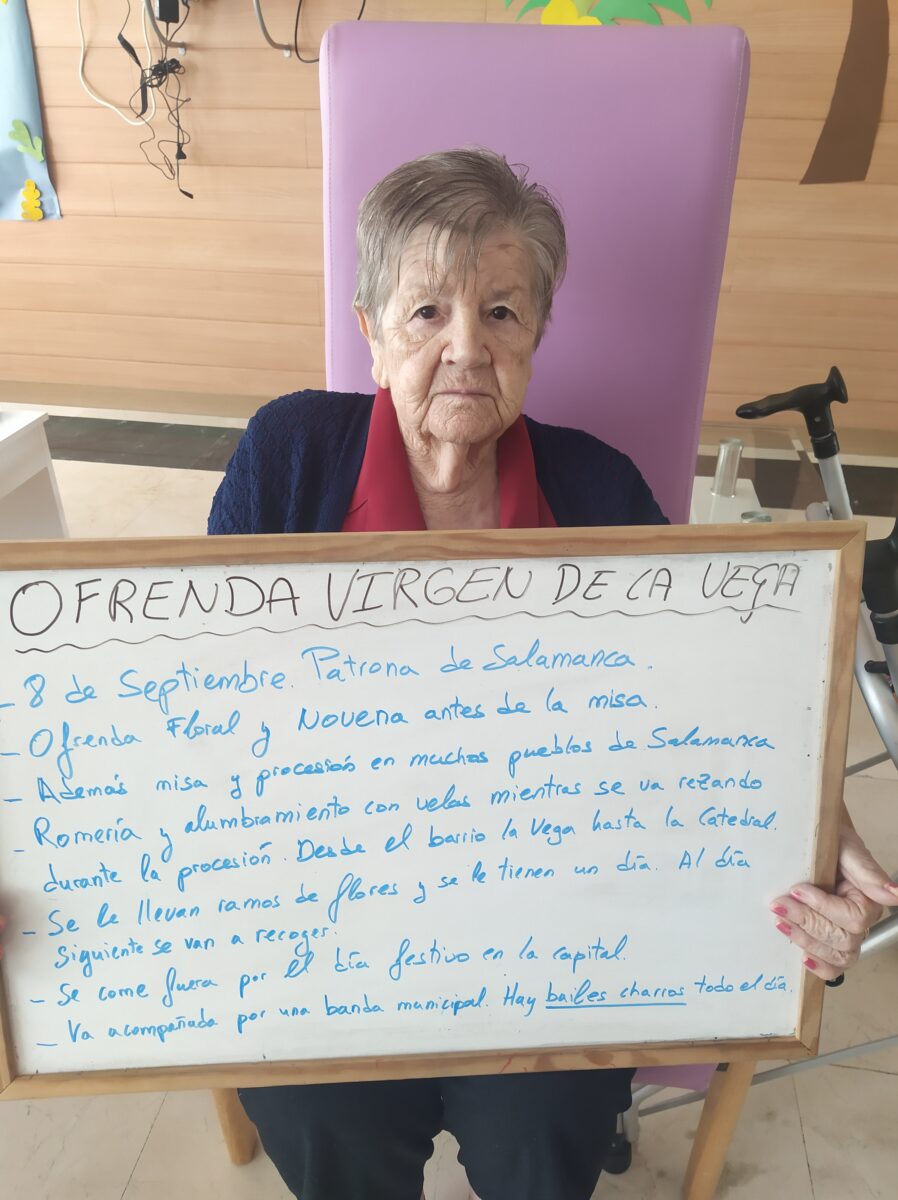 OFRENDA VIRGEN DE LA VEGA
- 8 de Septiembre. Patrona de Salamanca.
- Ofrenda Floral y Novena antes de la misa.
- Además misa y procesión en muchos pueblos de Salamanca
- Romería y alumbramiento con velas mientras se va rezando
durante la procesión. Desde el barrio la Vega hasta la Catedral.
- Se le llevan ramos de flores y se le tienen un día. Al día
siguiente se van a recoger.
- Se come fuera por el día festivo en la capital.
- Va acompañada por una banda municipal. Hay bailes charros todo el día.